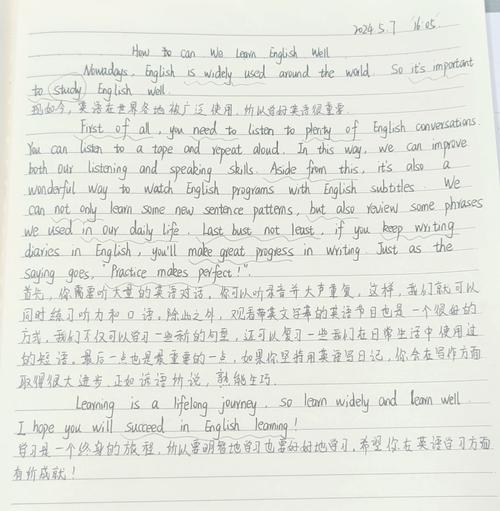 2024.5.7 16:05
How to can We Learn English Well
Nowadays, English is widely used around the world. So it's important
to study English well.
现如今，英语在世界各地被广泛使用，所以学好英语很重要
First of all, you need to listen to plenty of English conversations.
You can listen to a tape and repeat aloud. In this way, we can improve
both our listening and speaking skills. Aside from this, it's also a
wonderful way to watch English programs with English subtitles. We
can not only learn some new sentence patterns, but also review some phrases
we used in our daily life. Last bust not least, if you keep writing
diaries in English, you'll make great progress in writing. Just as the
saying goes, "Practice makes perfect!".
首先，你需要听大量的英语对话，你可以听录音并大声重复，这样，我们就可以
同时练习听力和口语，除此之外，观看带英文字幕的英语节目也是一个很好的
方式，我们不仅可以学习一些新的句型，还可以复习一些我们在日常生活中使用过
的短语，最后一点也是最重要的一点，如果你坚持用英语写日记，你会在写作方面
取得很大进步，正如谚语所说，熟能生巧.
Learning is a lifelong journey, so learn widely and learn well.
I hope you will succeed in English learning!
学习是一个终身的旅程，所以要明智地学习也要好好地学习，希望你在英语学习方面
有所成就！